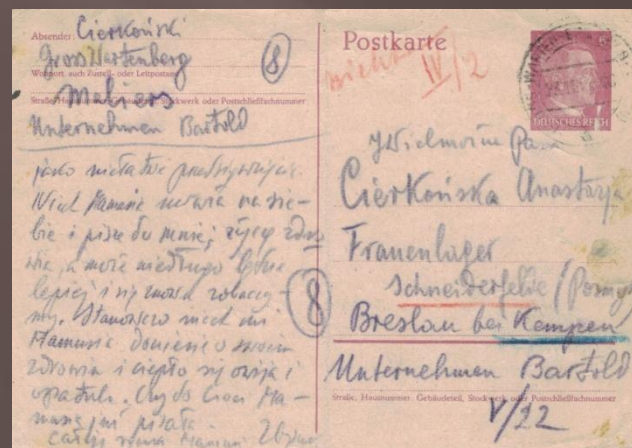 Absender: Cierkoński
Gross Wartenberg
Wohnort, auch Zustell- oder Leitpostamt
Straße, Hausnummer, Gebäudeteil, Stockwerk oder Postschließfachnummer
Unternehmen Barthold
8
jako
Niech Mamusia uważa na sie-
bie i pisze do mnie, życzę zdro
wia, a może niedługo będzie
lepiej i się znowu zobaczy-
my. Stanowczo niech mi
Mamusia doniesie o swoim
zdrowiu i ciepło się owija i
opatula. Czy do Cioci Ma-
musia już pisała.
Całuję Mamusię Zbyszek
8
Postkarte
IV/2
DEUTSCHES REICH
6
JWielmożna Pani
Cierkońska Anastazja
Frauenlager
Schneiderfelde
Breslau bei Kempen
Unternehmen Barthold
Straße, Hausnummer, Gebäudeteil, Stockwerk oder Postschließfachnummer
V/22